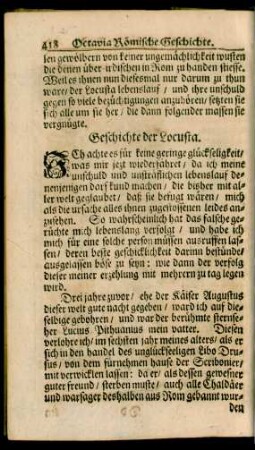 418 Octavia Römische Geschichte.
len gewölbern von keiner ungemächlichkeit wusten
die denen über-irdischen in Rom zu handen stiesse.
Weil es ihnen nun diesesmal nur darum zu thun
ware/ der Locusta lebenslauf / und ihre unschuld
gegen so viele bezüchtigungen anzuhören/ setzten sie
sich alle um sie her/ die dann folgender massen sie
vergnügte.
Geschichte der Locusta.
ICh achte es für keine geringe glückseligkeit/
was mir jezt wiederfäret/ da ich meine
unschuld und unsträflichen lebenslauf
denenjenigen darf kund machen/ die bisher mit al-
ler welt geglaubet/ daß sie befugt wären / mich
als die ursache alles ihnen zugewiesenen leides an-
zusehen. So wahrscheinlich hat das falsche ge-
rüchte mich lebenslang verfolgt / und habe ich
mich für eine solche person müssen ausruffen las-
sen/ deren beste geschicklichkeit darinn befünde/
ausgelassen böse zu seyn: wie dann der verfolg
dieser meiner erzehlung mit mehrern zu tag legen
wird.
Drei jahre zuvor/ ehe der Käiser Augustus
dieser welt gute nacht gegeben/ ward ich auf die-
selbige gebohren/ und war der berühmte sternse-
her Lucius Pithuanius mein vatter. Diesen
verlohre ich/ im sechsten jahr meines alters/ als er
sich in den handel des unglückseeligen Libo Dru-
sus/ von dem fürnehmen hause der Scribonier/
mit verwicklen lassen: da er/ als dessen gewesner
guter freund/ sterben muste/ auch alle Chaldäer
und warsager deshalben aus Rom gebannt wur-
den